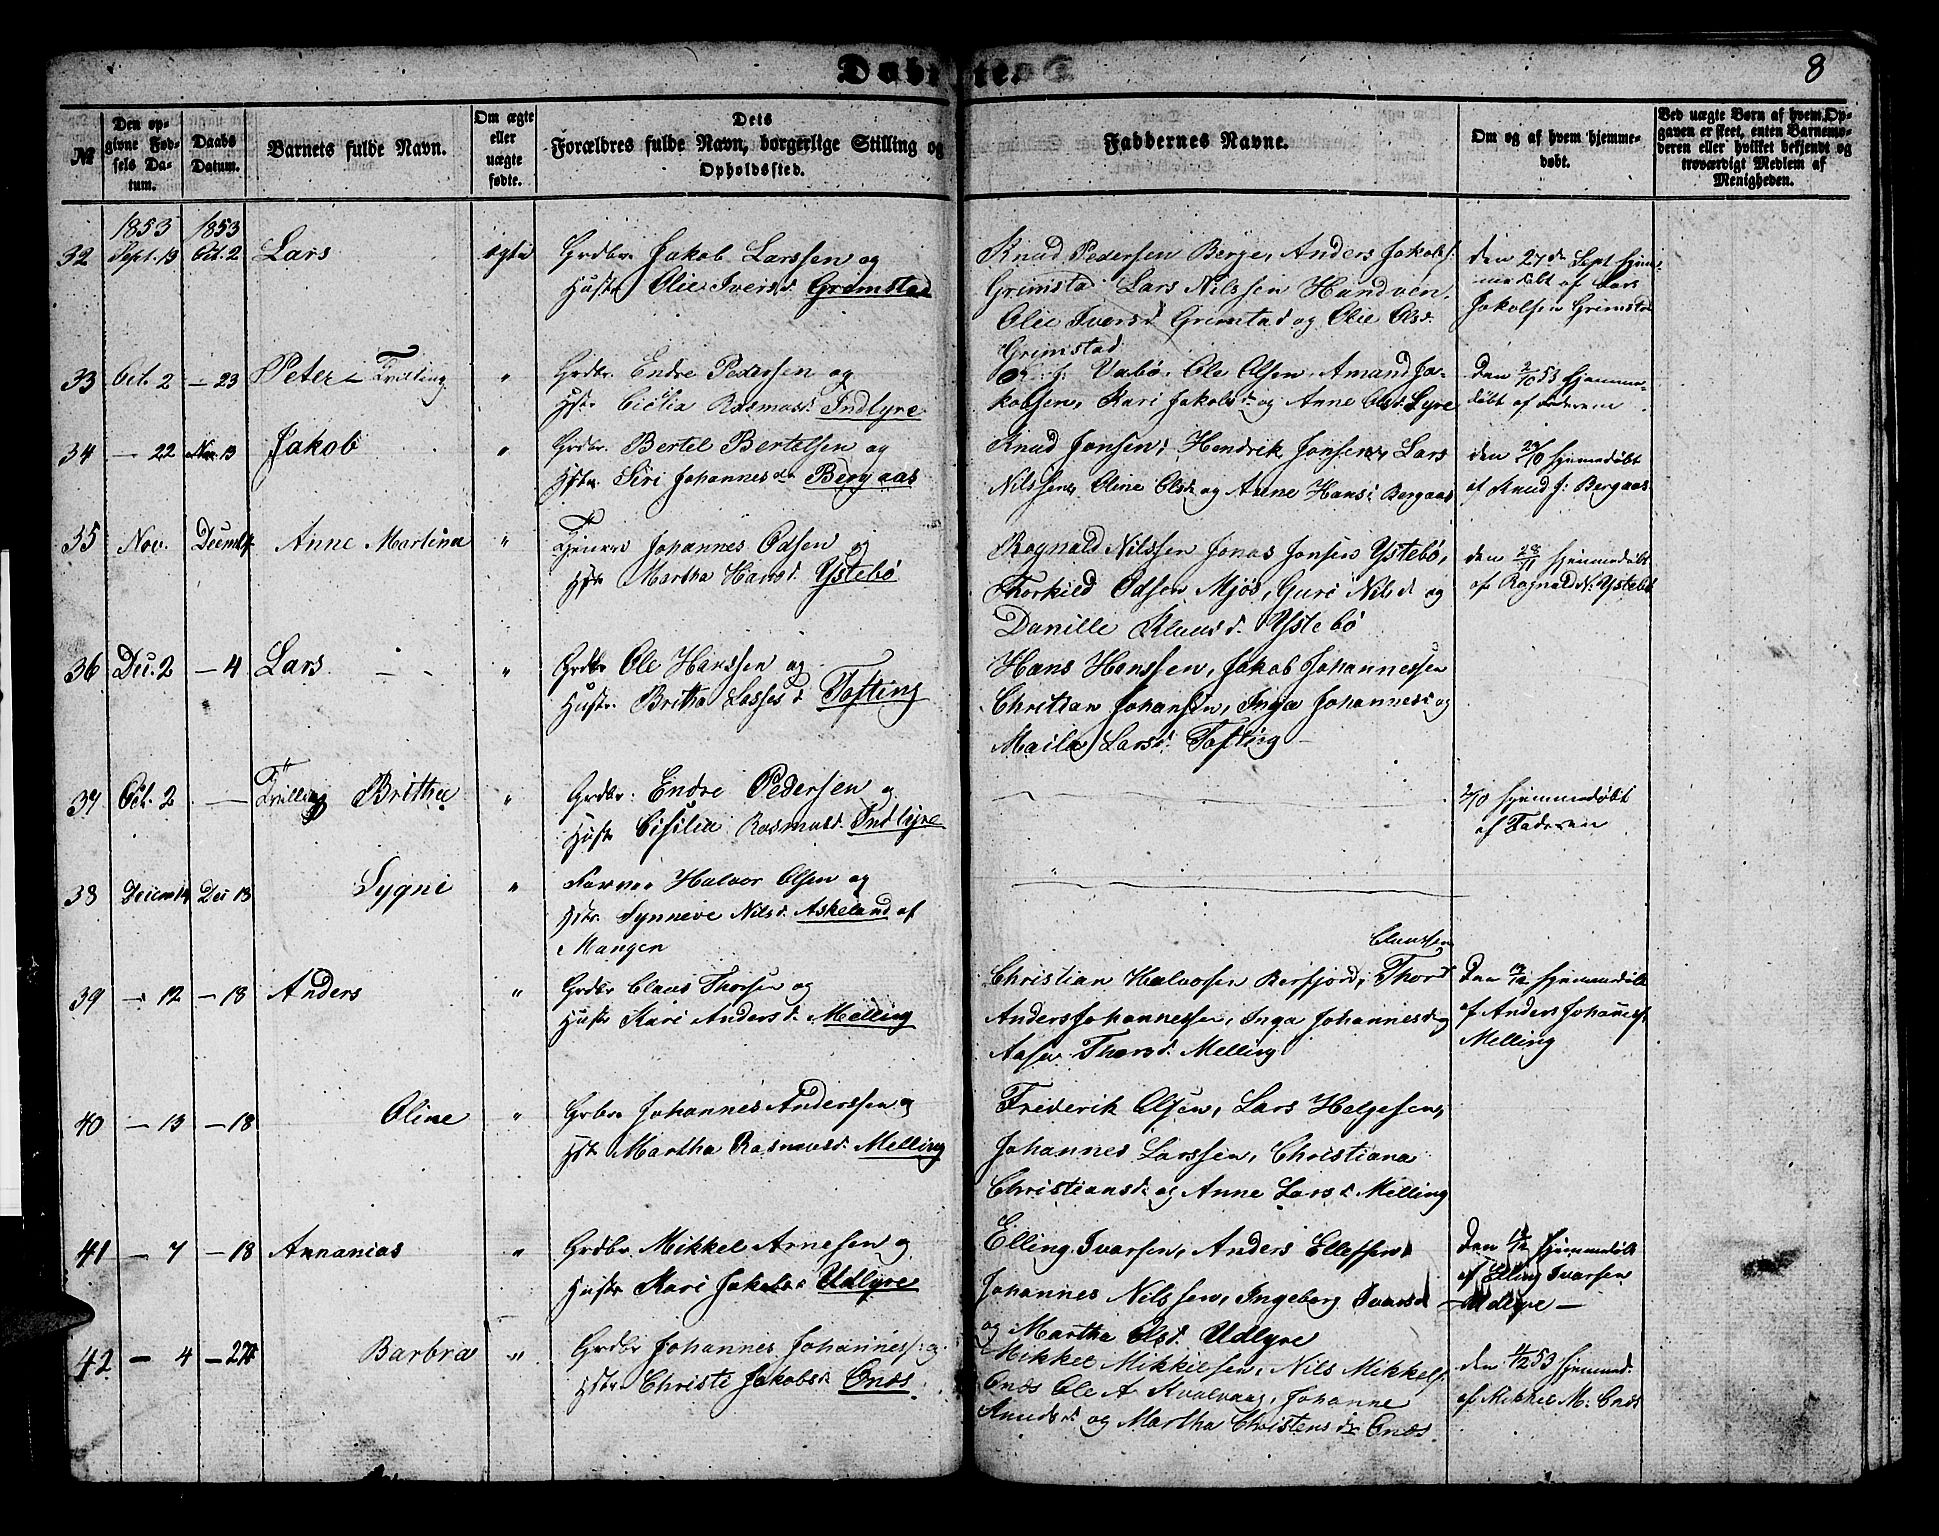 Døbte.
8
№
Den opgivne Fødsels Datum.
Daabs Datum.
Barnets fulde Navn.
Om ægte eller uægte fødte.
Dets Forældres fulde Navn, borgerlige Stilling og Opholdssted.
Faddernes Navne.
Om og af hvem hjemmedøbt.
Ved uægte Børn af hvem Opgaven er skeet, enten Barnemoderen eller hvilket bekjendt og troværdigt Medlem af Menigheden.
1853 1853
32 Sept. 13 Oct. 2 Lars ægte Grdbr Jakob Larssen og
Hustr Olie Ivers d. Grimstad
Knud Pedersen Berge, Anders Jakobs.
Grimstad Lars Nilssen Handven,
Olie Ivers d Grimstad og Olie Ols d.
Grimstad
den 27de Sept hjem-
medøbt af Lars
Jakobsen Grimstad
33 Oct. 2 — 23 Peter — Tvilling " Grdbr. Endre Pedersen og
Hstr Cicilia Rasmus d. Indlyre
Vabø, Ole Olsen, Amand Ja-
kobsen, Kari Jakobs d og Anne Ols d. Lyre
Den 2/10 53 hjemme-
døbt af Faderen
34 — 22 Nov 13 Jakob " Grdbr. Bertel Bertelsen og
Hstr Siri Johannes dtr Bergaas
Knud Jonsen, Hendrik Jonsen, Lars
Nilssen, Oline Ols d og Anne Hans d Bergaas
den 23/10 hjemmedøbt
af Knud J. Bergaas
35 Nov. Decem 4 Anne Martina " Tjener Johannes Odsen og
Hstr Martha Hans d. Ystebø
Ragnald Nilssen Jonas Jonsen Ystebø,
Thorkild Odsen Mjøs, Guri Nils d og
Danille Klaus d. Ystebø
den 28/11 hjemmedøbt
af Ragnald N. Ystebø
36 Dec. 2 — 4 Lars " Grdbr Ole Hanssen og
Hustr. Britha Lasses d Tofting
Hans Hanssen, Jakob Johannessen
Christian Johansen, Inga Johannes d og
Maila Lars d. Tofting —
37 Oct. 2 — Tvilling Britha " Grdbr. Endre Pedersen og
Hustr Cisilia Rasmus d. Indlyre
2/10 hjemmedøbt
af Faderen
38 Decem 14 Dec 13 Sygni " Halvor Olsen og
Hstr. Synneve Nils d. Askeland af
Mangen
39 — 12 — 18 Anders " Grdbr Claus Thorsen og
Hustr Kari Anders d. Melling
Claussen
Christian Halvorsen Berfjord, Thor
Anders Johannessen, Inga Johannes d og
Aase Thors d. Melling
Den 12/12 hjemmedøbt
af Anders Johannes.
Melling
40 — 13 — 18 Oline " Grbr Johannes Anderssen og
Hstr Martha Rasmus d. Melling
Friderik Olsen, Lars Helgesen,
Johannes Larssen, Christiana
Christians d. og Anne Lars d Melling
41 — 7 — 18 Annanias " Grdbr. Mikkel Arnesen og
Hustr Kari Jakobs d Udlyre
Elling Ivarsen, Anders Ellefsen,
Johannes Nilssen, Ingeborg Ivars d
og Martha Ols d. Udlyre
Den hjemmedøbt
af Elling Ivarsen
— Udlyre —
42 — 4 — 27 Barbra " Grdbr Johannes Johannes. og
Hstr Christi Jakobs d Onæs
Mikkel Mikkelsen, Nils Mikkels.
Onæs Ole A Kvalvaag, Johanne
Knuds d og Martha Christens dtr Onæs.
den 4/12 53 hjemmed.
af Mikkel M. Onæs